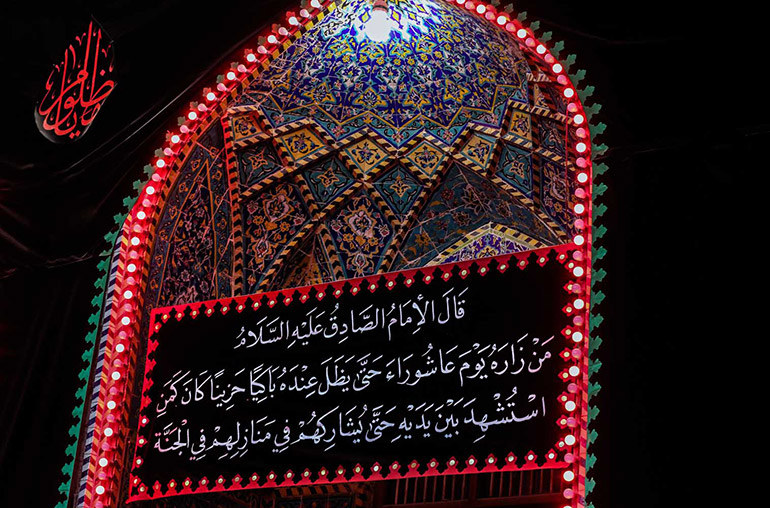 يا مظلوم
قَالَ الإِمَامُ الصَّادِقُ عَلَيْهِ السَّلَامُ
مَنْ زَارَهُ يَوْمَ عَاشُورَاءَ حَتَّىٰ يَظَلَّ عِنْدَهُ بَاكِيًا حَزِينًا كَانَ كَمَنِ
اسْتُشْهِدَ بَيْنَ يَدَيْهِ حَتَّىٰ يُشَارِكَهُمْ فِي مَنَازِلِهِمْ فِي الْجَنَّةِ